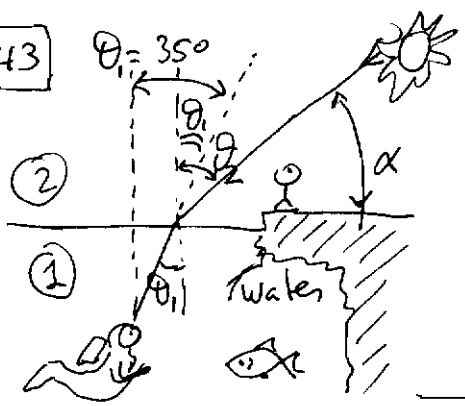 43
θ₁ = 35°
θ₁
θ₂
②
α
①
θ₁
water